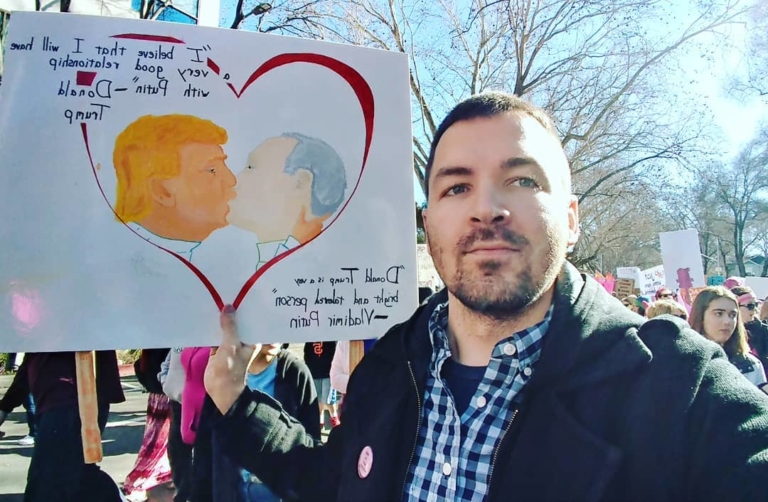 "I believe that I will have
a very good relationship
with Putin" - Donald
Trump
"Donald Trump is a very
bright and talented person"
- Vladimir Putin